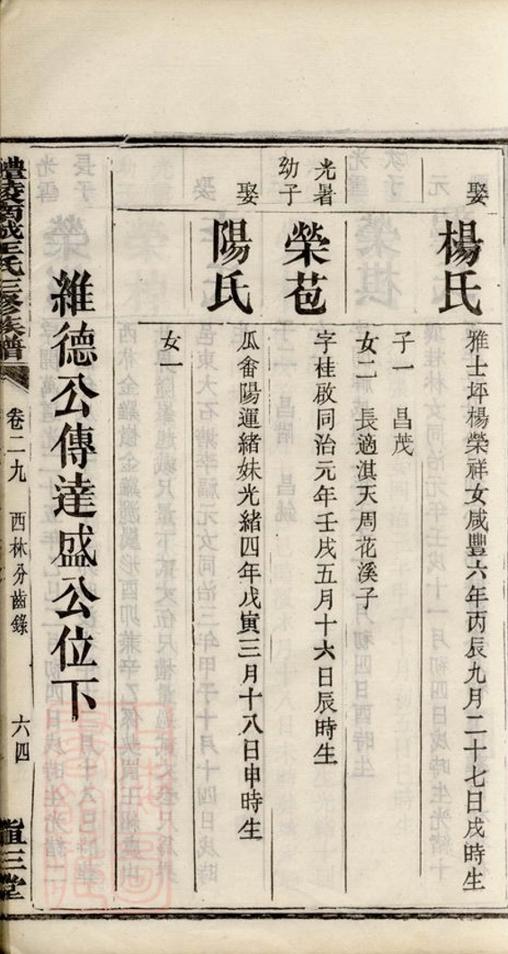 娶
楊氏
雅士坪楊榮祥女咸豐六年丙辰九月二十七日戌時生
子一　昌茂
女二　長適淇天周花溪子
光署
幼子
榮苞
字桂啟同治元年壬戌五月十六日辰時生
娶
陽氏
瓜畬陽運緒妹光緒四年戊寅三月十八日申時生
女一
維德公傳達盛公位下
醴陵南城王氏三修族譜
卷二九
西林分齒錄
六四
三堂